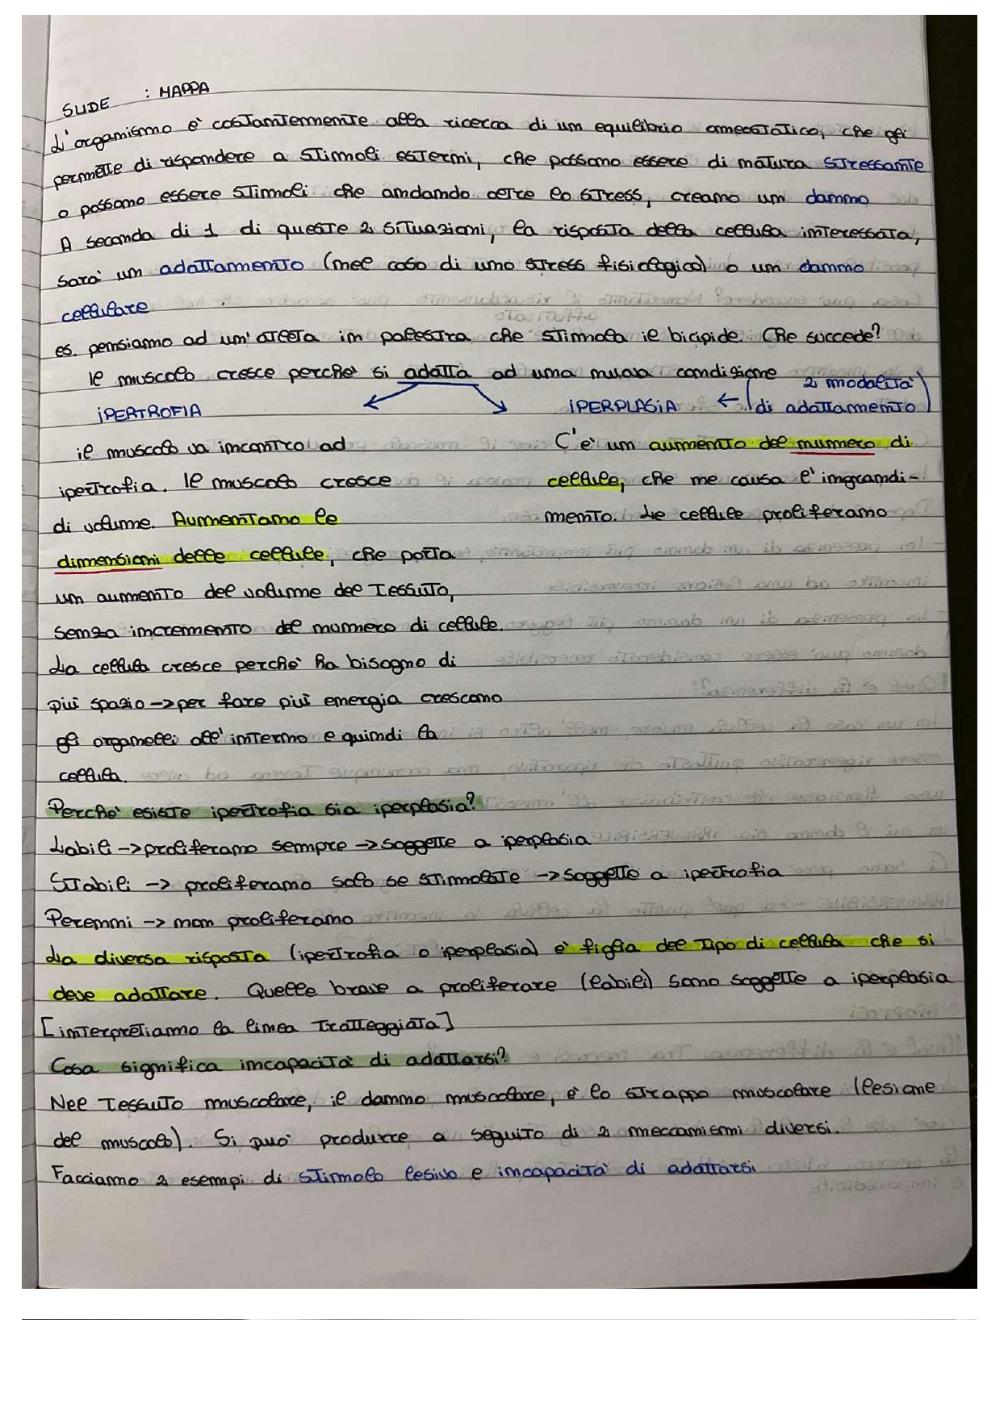 SLIDE : MAPPA
L'organismo è costantemente alla ricerca di un equilibrio omeostatico, che gli
permette di rispondere a stimoli esterni, che possono essere di natura stressante
o possono essere stimoli che andando oltre lo stress, creano un danno
A seconda di 1 di queste 2 situazioni, la risposta della cellula interessata,
sarà un adattamento (nel caso di uno stress fisiologico) o un danno
cellulare
es. pensiamo ad un'atleta in palestra che stimola il bicipide. Che succede?
Il muscolo cresce perchè si adatta ad una nuova condizione
IPERTROFIA
il muscolo va incontro ad
ipertrofia. Il muscolo cresce
di volume. Aumentano le
dimensioni delle cellule, che porta
un aumento del volume del tessuto,
senza incremento del numero di cellule.
La cellula cresce perchè ha bisogno di
più spazio → per fare più energia crescono
gli organelli all'interno e quindi la
cellula.
IPERPLASIA ← (2 modalità
di adattamento)
C'è un aumento del numero di
cellule, che ne causa l'ingrandi-
mento. Le cellule proliferano
Perchè esiste ipertrofia sia iperplasia?
Labili → proliferano sempre → soggette a iperplasia
Stabili → proliferano solo se stimolate → soggetto a ipertrofia
Perenni → non proliferano
La diversa risposta (ipertrofia o iperplasia) è figlia del tipo di cellula che si
deve adattare. Quelle brave a proliferare (labili) sono soggette a iperplasia
[interpretiamo la linea tratteggiata]
Cosa significa incapacità di adattarsi?
Nel tessuto muscolare, il danno muscolare, è lo strappo muscolare (lesione
del muscolo). Si può produrre a seguito di 2 meccanismi diversi.
Facciamo 2 esempi di stimolo lesivo e incapacità di adattarsi